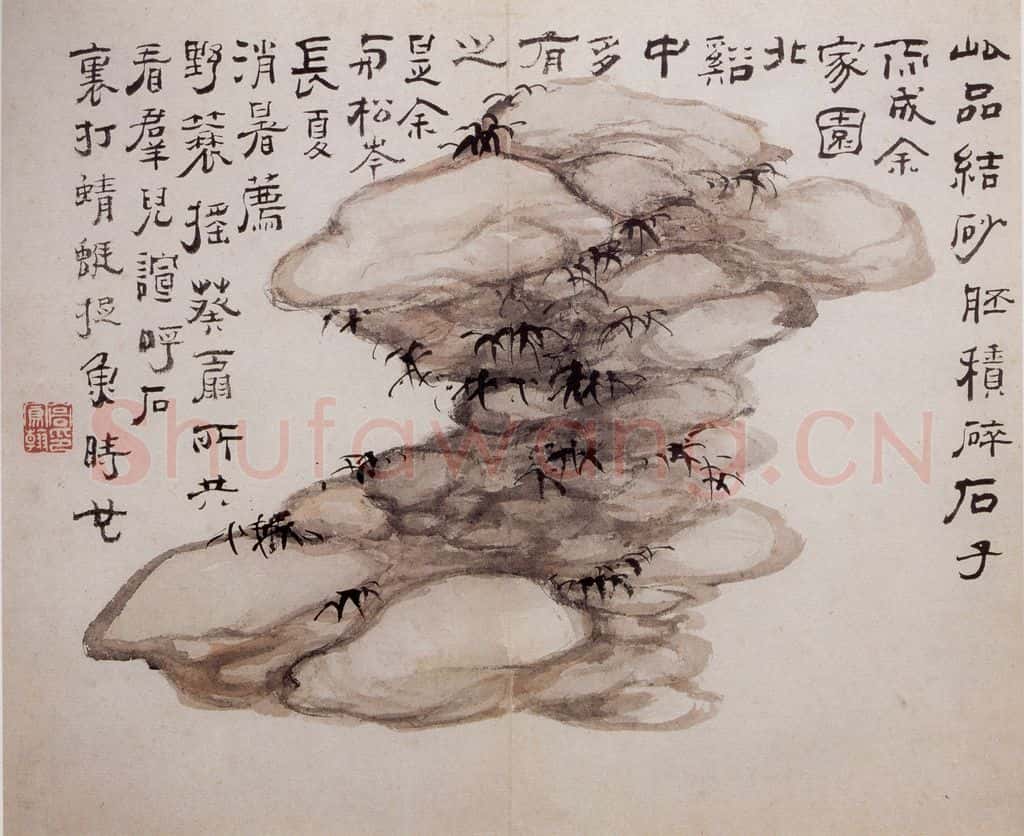 此品結砂胚積碎石子
而成余
家園
北
谿
中
多
有
之
是余
与松岑
長夏
消暑薦
野蔌搖葵扇所共
看羣兒諠呼石
裏打蜻蜓捉魚時也
高印
鳳翰
Shufawang.CN